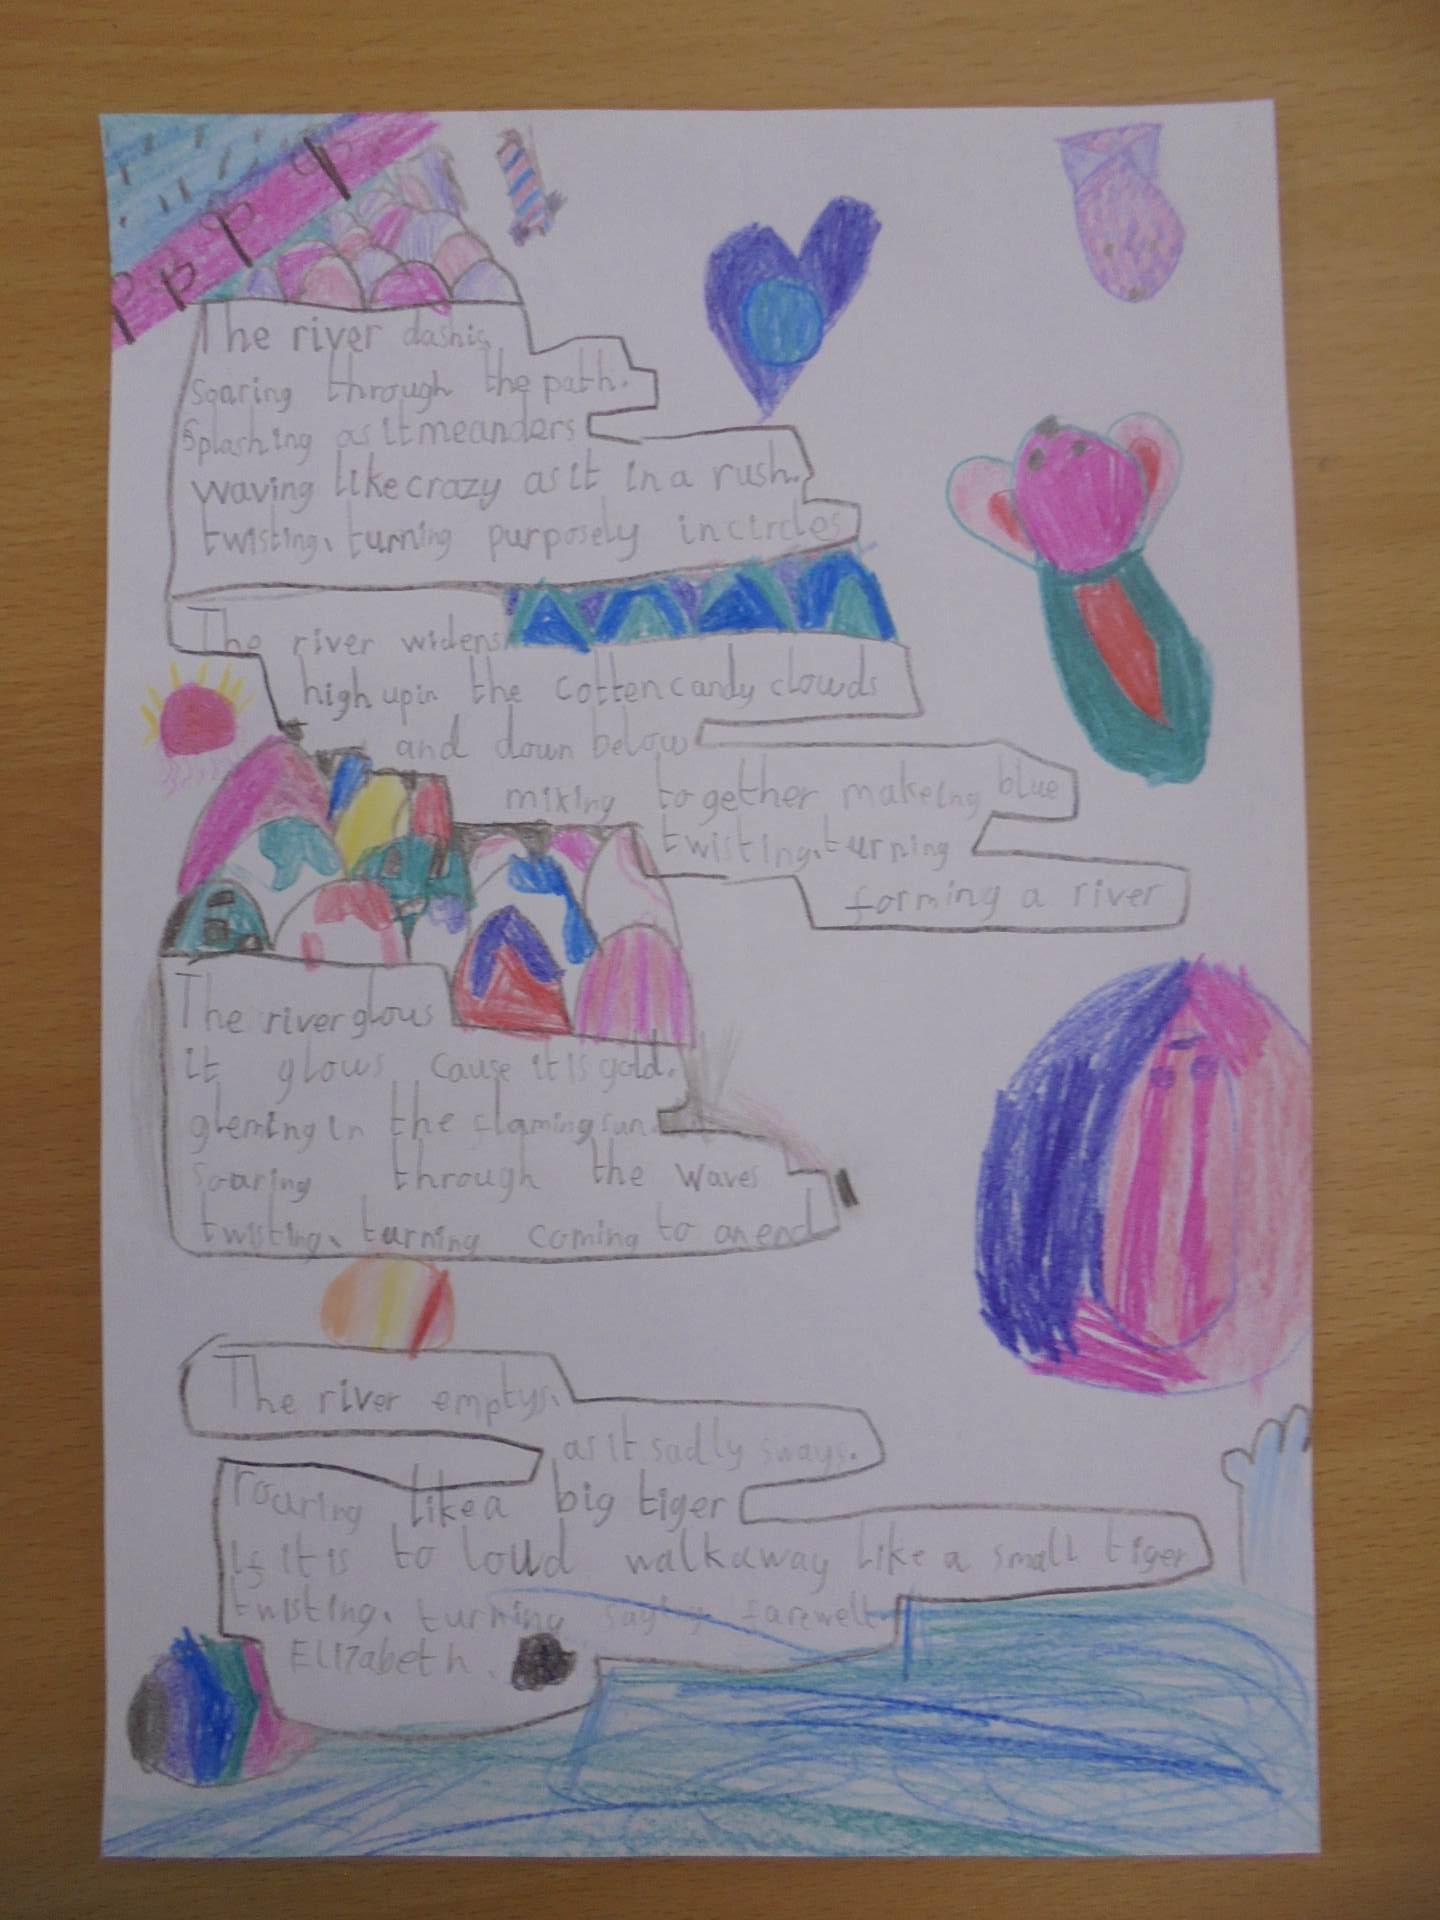 The river dashis
soaring through the path.
splashing as it meanders
waving like crazy as it in a rush.
twisting, turning purposely in circles
The river widens
high up in the cotten candy clowds
and down below
mixing together makeing blue
twisting, turning
forming a river
The river glous
it glows cause it is gold.
gleming in the flaming sun
soaring through the waves
twisting, turning coming to an end
The river emptys.
as it sadly sways.
roaring like a big tiger
if it is to loud walk away like a small tiger
twisting, turning saying farewell
Elizabeth.